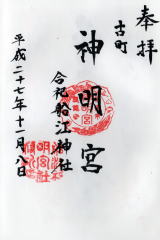 奉拝
古町
神明宮
合祀船江神社
平成二十七年十一月八日